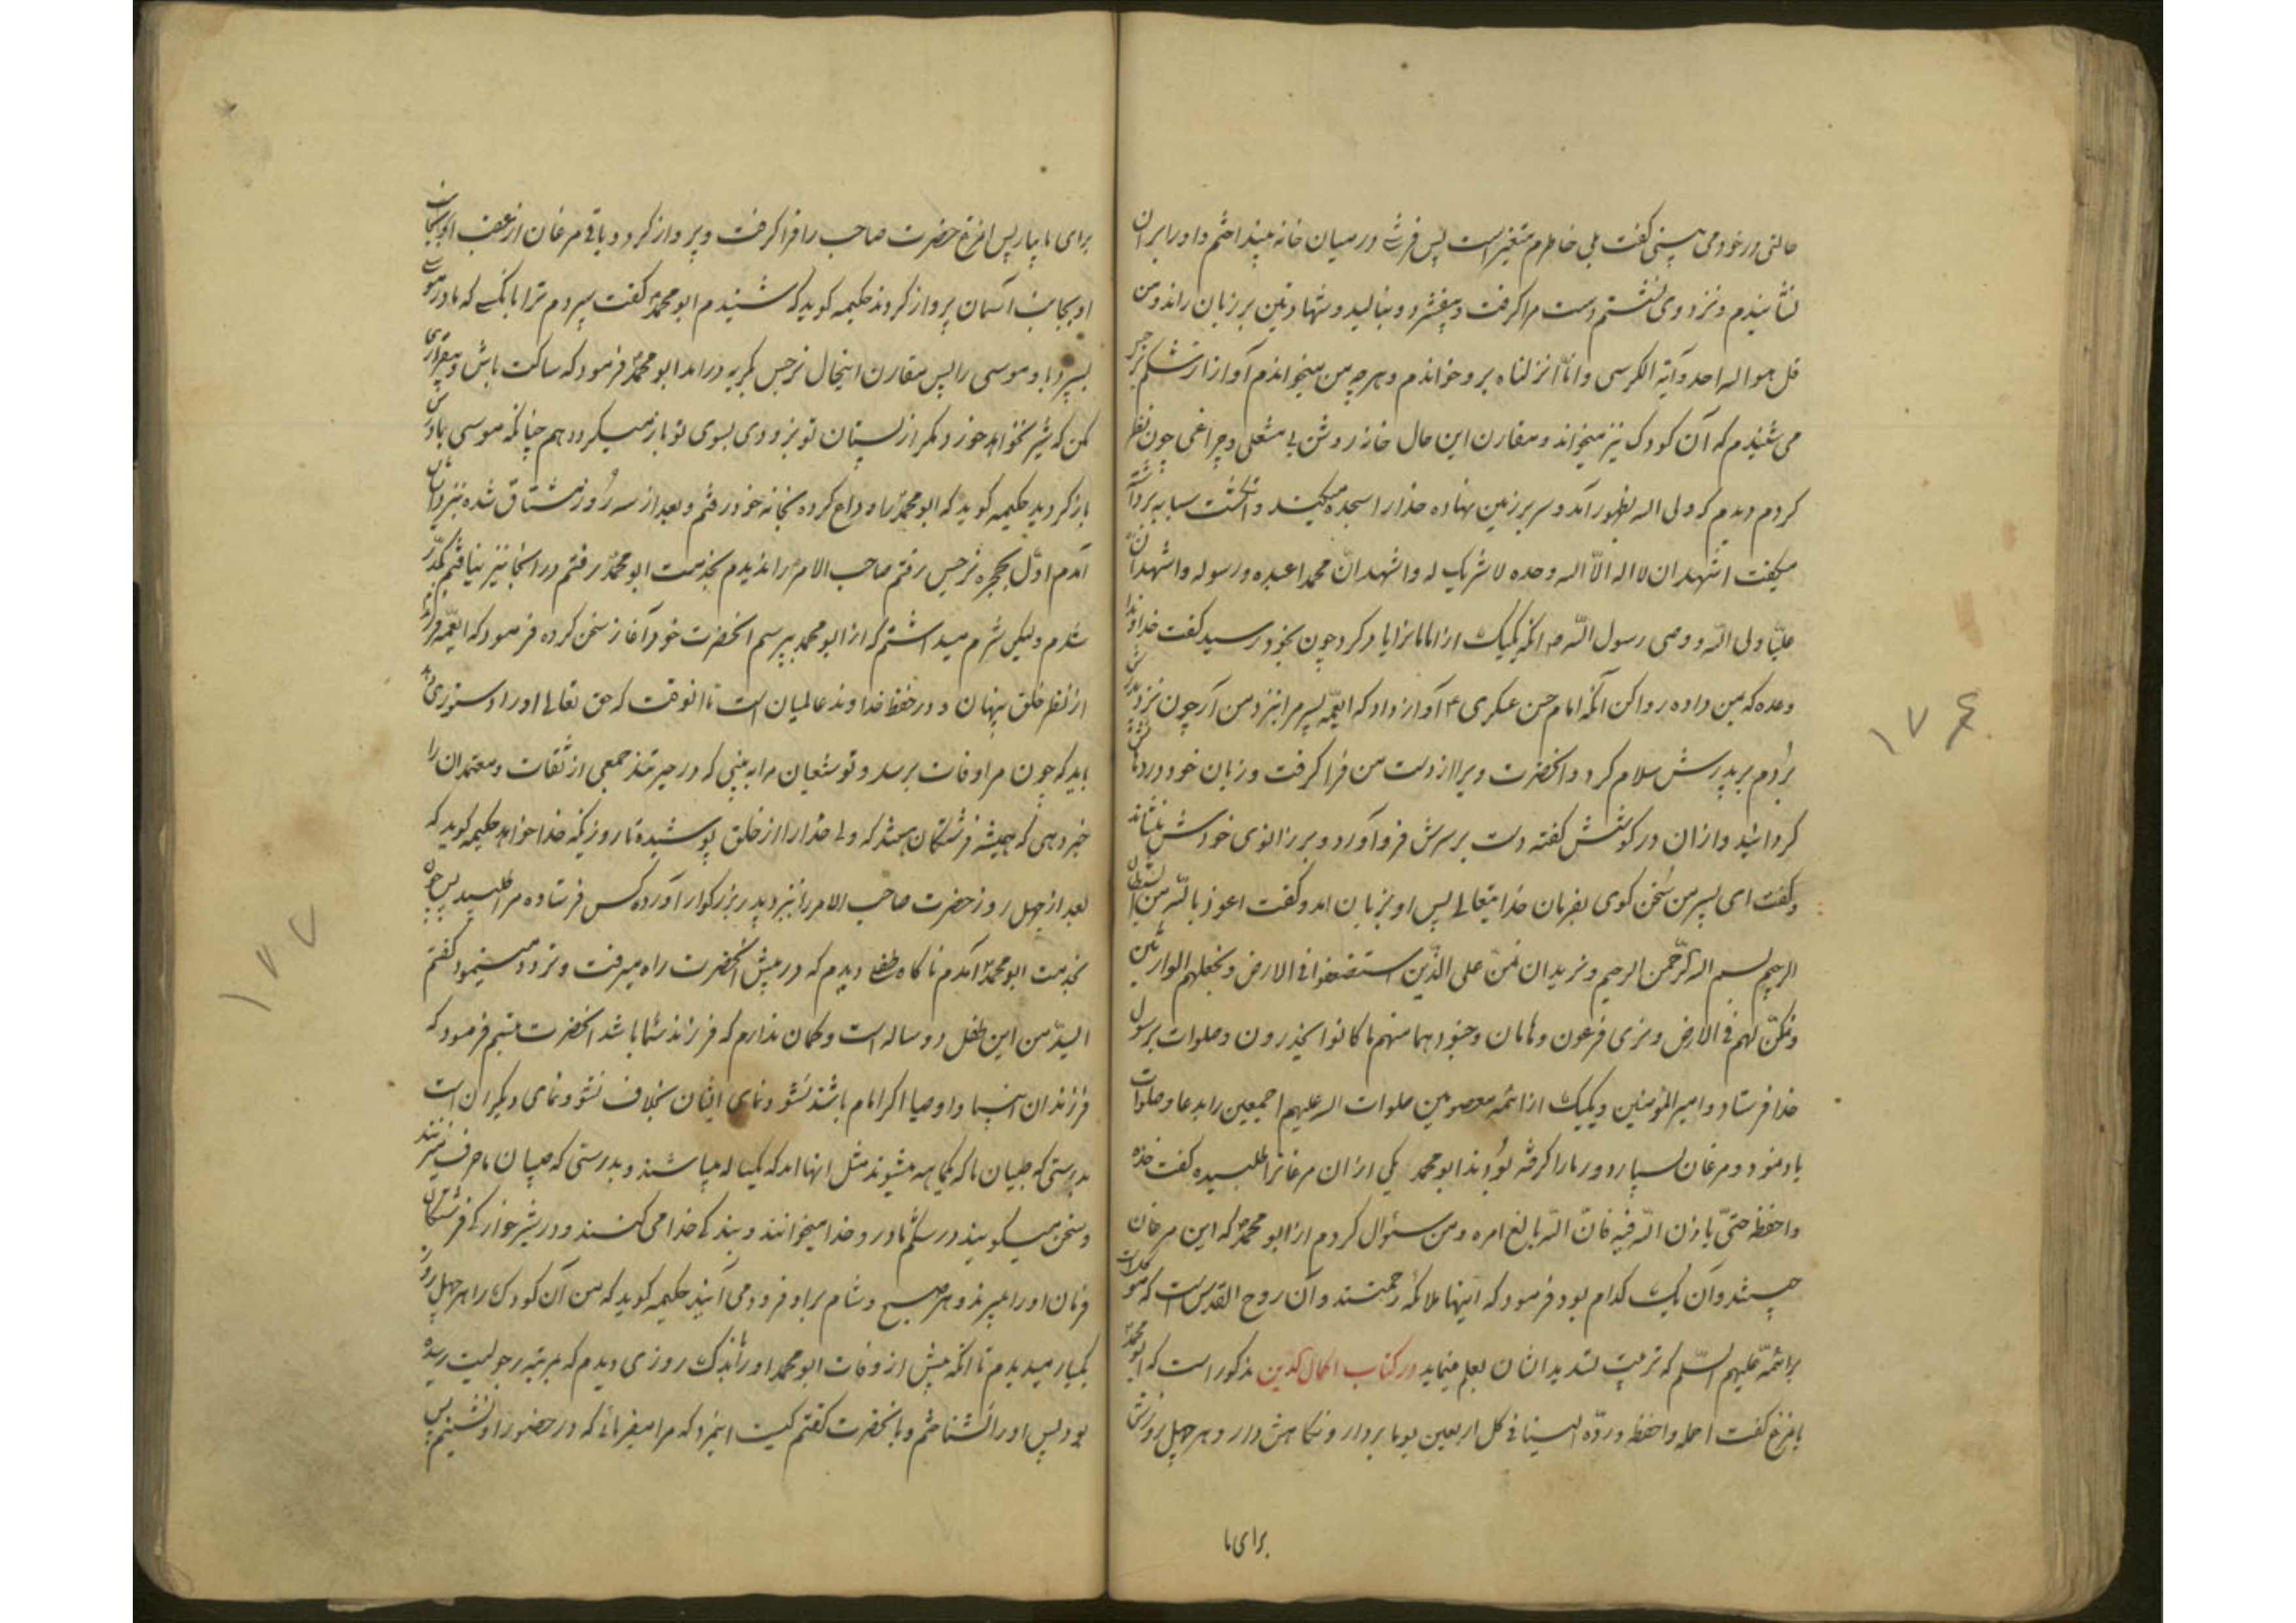 حالتی در خود می بینی گفت بلی خاطرم متغیر است پس فرشی در میان خانه بینداختم و او را بر ان
نشانیدم و نزد وی نشستم دست مرا گرفت و بیفشرد و بنالید و شهادتین بر زبان راند و من
قل هو الله احد و آیة الکرسی و انّا انزلناه برو خواندم و هر چه من میخواندم آواز از شکم نرجس
می شنیدم که آن کودک نیز میخواند و مقارن این حال خانه روشن بی مشعلی و چراغی چون نظر
کردم دیدم که ولی الله بظهور آمد و سر بر زمین نهاده خدا را سجده میکند و انگشت سبابه برداشته
میگفت اشهد ان لا اله الّا الله وحده لا شریک له و اشهد انّ محمدا عبده و رسوله و اشهد انّ
علیّا ولی اللّه و وصی رسول اللّه ص انگه یکیک از امامانرا یاد کرد چون بخود رسید گفت خداوندا
وعده که بمن داده روا کن آنگه امام حسن عسکری ع آواز داد که ایعمّه پسر مرا بنزد من آر چون نزد پدرش
بردم بر پدرش سلام کرد و انحضرت ویرا از دست من فرا گرفت و زبان خود در دهانش
گردانید و اذان در گوشش گفته دست بر سرش فرو آورد و بر زانوی خودش بنشاند
و گفت ای پسر من سخن گوی بفرمان خدایتعالی پس او بزبان امد و گفت اعوذ باللّه من الشیطان
الرجیم بسم الله الرّحمن الرحیم و نرید ان نمنّ علی الذّین استضعفوا فی الارض و نجعلهم الوارثین
و نمکّن لهم فی الارض و نری فرعون و هامان و جنود هما منهم ما کانوا یحذرون و صلوات بر رسول
خدا فرستاد و امیر المؤمنین و یکیک از ائمه معصومین صلوات الله علیهم اجمعین را بدعا و صلوات
یاد نمود و مرغان بسیار دور ما را گرفته بودند ابو محمد یکی از ان مرغانرا طلبیده گفت خذه
واحفظه حتّی یاذن اللّه فیه فانّ اللّه بالغ امره و من سئوال کردم از ابو محمد که این مرغان
چیستند و آن یک کدام بود فرمود که اینها ملائکه رحمتند و آن روح القدس است که موکلست
بر ائمّه علیهم السّلم که تربیت و تسدید ایشان بعلم مینماید در کتاب اکمال الدین مذکور است که ابو محمد
بامرغ گفت احمله واحفظه وردّه الینا فی کل اربعین یوما بردار و نگاهش دار و هر چهل روزش
برای ما
برای ما بیار پس امرغ حضرت صاحب را فرا گرفت و پرواز کرد و باقی مرغان از عقب او بجانب
او بجانب آسمان پرواز کردند حکیمه گوید که شنیدم ابو محمد گفت سپردم ترا بانکسی که مادر موسی
بسپرد باو موسی را پس مقارن اینحال نرجس بگریه درامد ابو محمد فرمود که ساکت باش و بیقراری
مکن که شیر نخواهد خورد مگر از پستان تو بزودی بسوی تو باز میگردد هم چنانکه موسی بمادرش
باز گردید حکیمه گوید که ابو محمد را وداع کرده بخانه خود رفتم و بعد از سه روز مشتاق شده بنزد ایشان
آمدم اوّل بحجره نرجس رفتم صاحب الامر را ندیدم بخدمت ابو محمد رفتم در انجا نیز نیافتم مکدّر
شدم ولیکن شرم میداشتم که از ابو محمد بپرسم انحضرت خود آغاز سخن کرده فرمود که ایعمّه فرزندم
از نظر خلق پنهان و در حفظ خداوند عالمیان است تا انوقت که حق تعالی او را دستوری دهد
باید که چون مرا وفات برسد و تو شیعیان مرا به بینی که در حیرتند جمعی از ثقات و معتمدان را
خبر دهی که همیشه فرشتگان هستند که ولی خدا را از خلق پوشیده تا روزیکه خدا خواهد حکیمه گوید که
بعد از چهل روز حضرت صاحب الامر را بنزد پدر بزرگوار آورده کس فرستاده مرا طلبید پس چون
بخدمت ابو محمد آمدم ناگاه طفلی دیدم که در پیش انحضرت راه میرفت و تردد مینمود گفتم
السیدّ من این طفل دو ساله است و گمان ندارم که فرزند شما باشد انحضرت متبسم فرمود که
فرزندان انبیا و اوصیا اگر امام باشند نشو و نمای ایشان بخلاف نشو و نمای دیگران است
بدرستی که صبیان ما که یکماهه میشوند مثل انها اند که یکساله میباشند و بدرستی که صبیان ما حرف میزنند
و سخن میگویند در شکم مادر و خدا میخوانند و بندکی خدا می کنند و در شیر خوارکی فرشتگان
فرمان او را میبرند و هر صبح و شام بر او فرود می آیند حکیمه گوید که من آن کودک را هر چهل روز
یکبار میدیدم تا انکه پیش از وفات ابو محمد او را باندک روزی دیدم که بمرتبه رجولیت رسیده
بود پس او را نشناختم و بانحضرت گفتم کیست اینمرد که مرا میفرمائی که در حضور او بنشینم پس
۱۷۶
۱۷۷